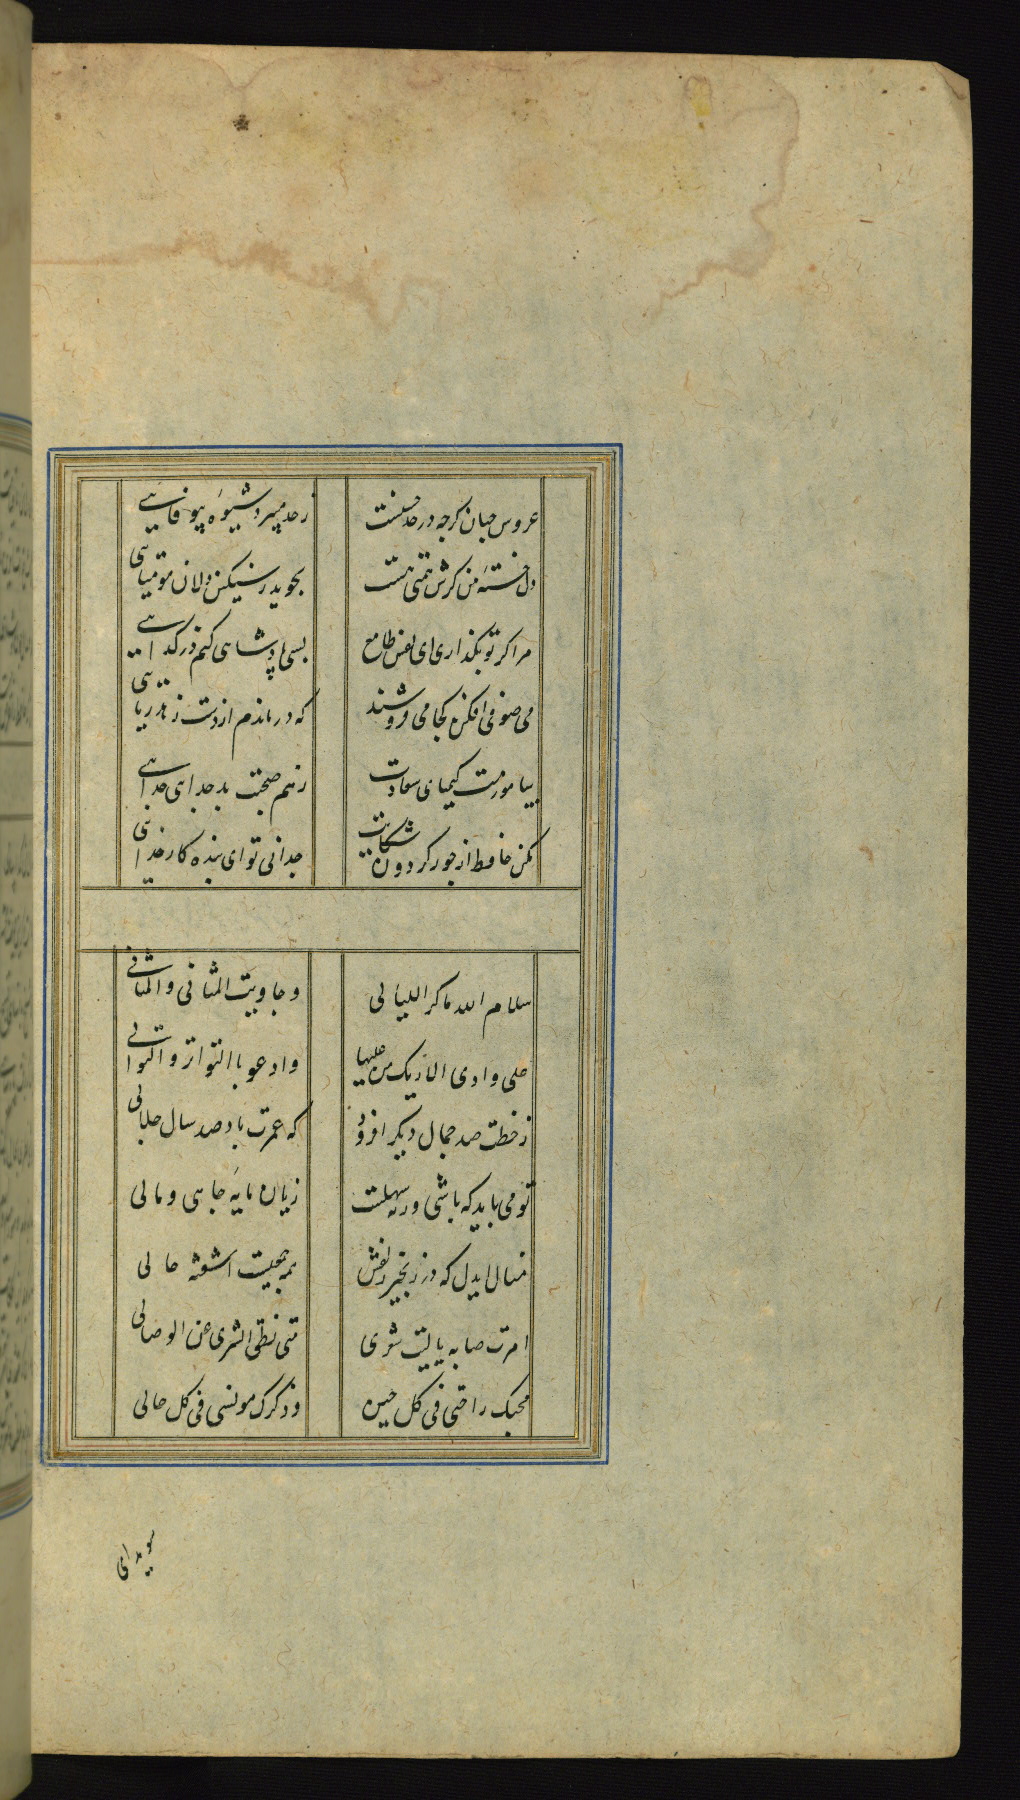 عروس جهان کرچه در حد حسنست ز حد میبرد شیوهٔ بیوفایی
دل خستهٔ من کرش همتی هست نجوید ز سنکین دلان مومیایی
مرا کر تو بکذاری ای نفس طامع بسی پادشاهی کنم در کدایی
می صوفی افکن کجا می فروشند که در تابم از دست زهد ریایی
بیاموزمت کیمیای سعادت ز هم صحبت بد جدایی جدایی
مکن حافظ از جور کردون شکایت چه دانی تو ای بنده کار خدایی
سلام الله ماکر اللیالی و جاوبت المثانی و المثانی
علی وادی الاراک من علیها و ادعو با التواتر و التوالی
ز خطت صد جمال دیکر افزود که عمرت باد صد سال جلالی
تو می باید که باشی ور نه سهلست زیان مایهٔ جاهی و مالی
منال ایدل که در زنجیر زلفش همه جمعیت است اشفته حالی
امرت صبابه یا لیت شعری متی نطق البشری عن الوصالی
محبک راحتی فی کل حین و ذکرک مونسی فی کل حالی
سویدای